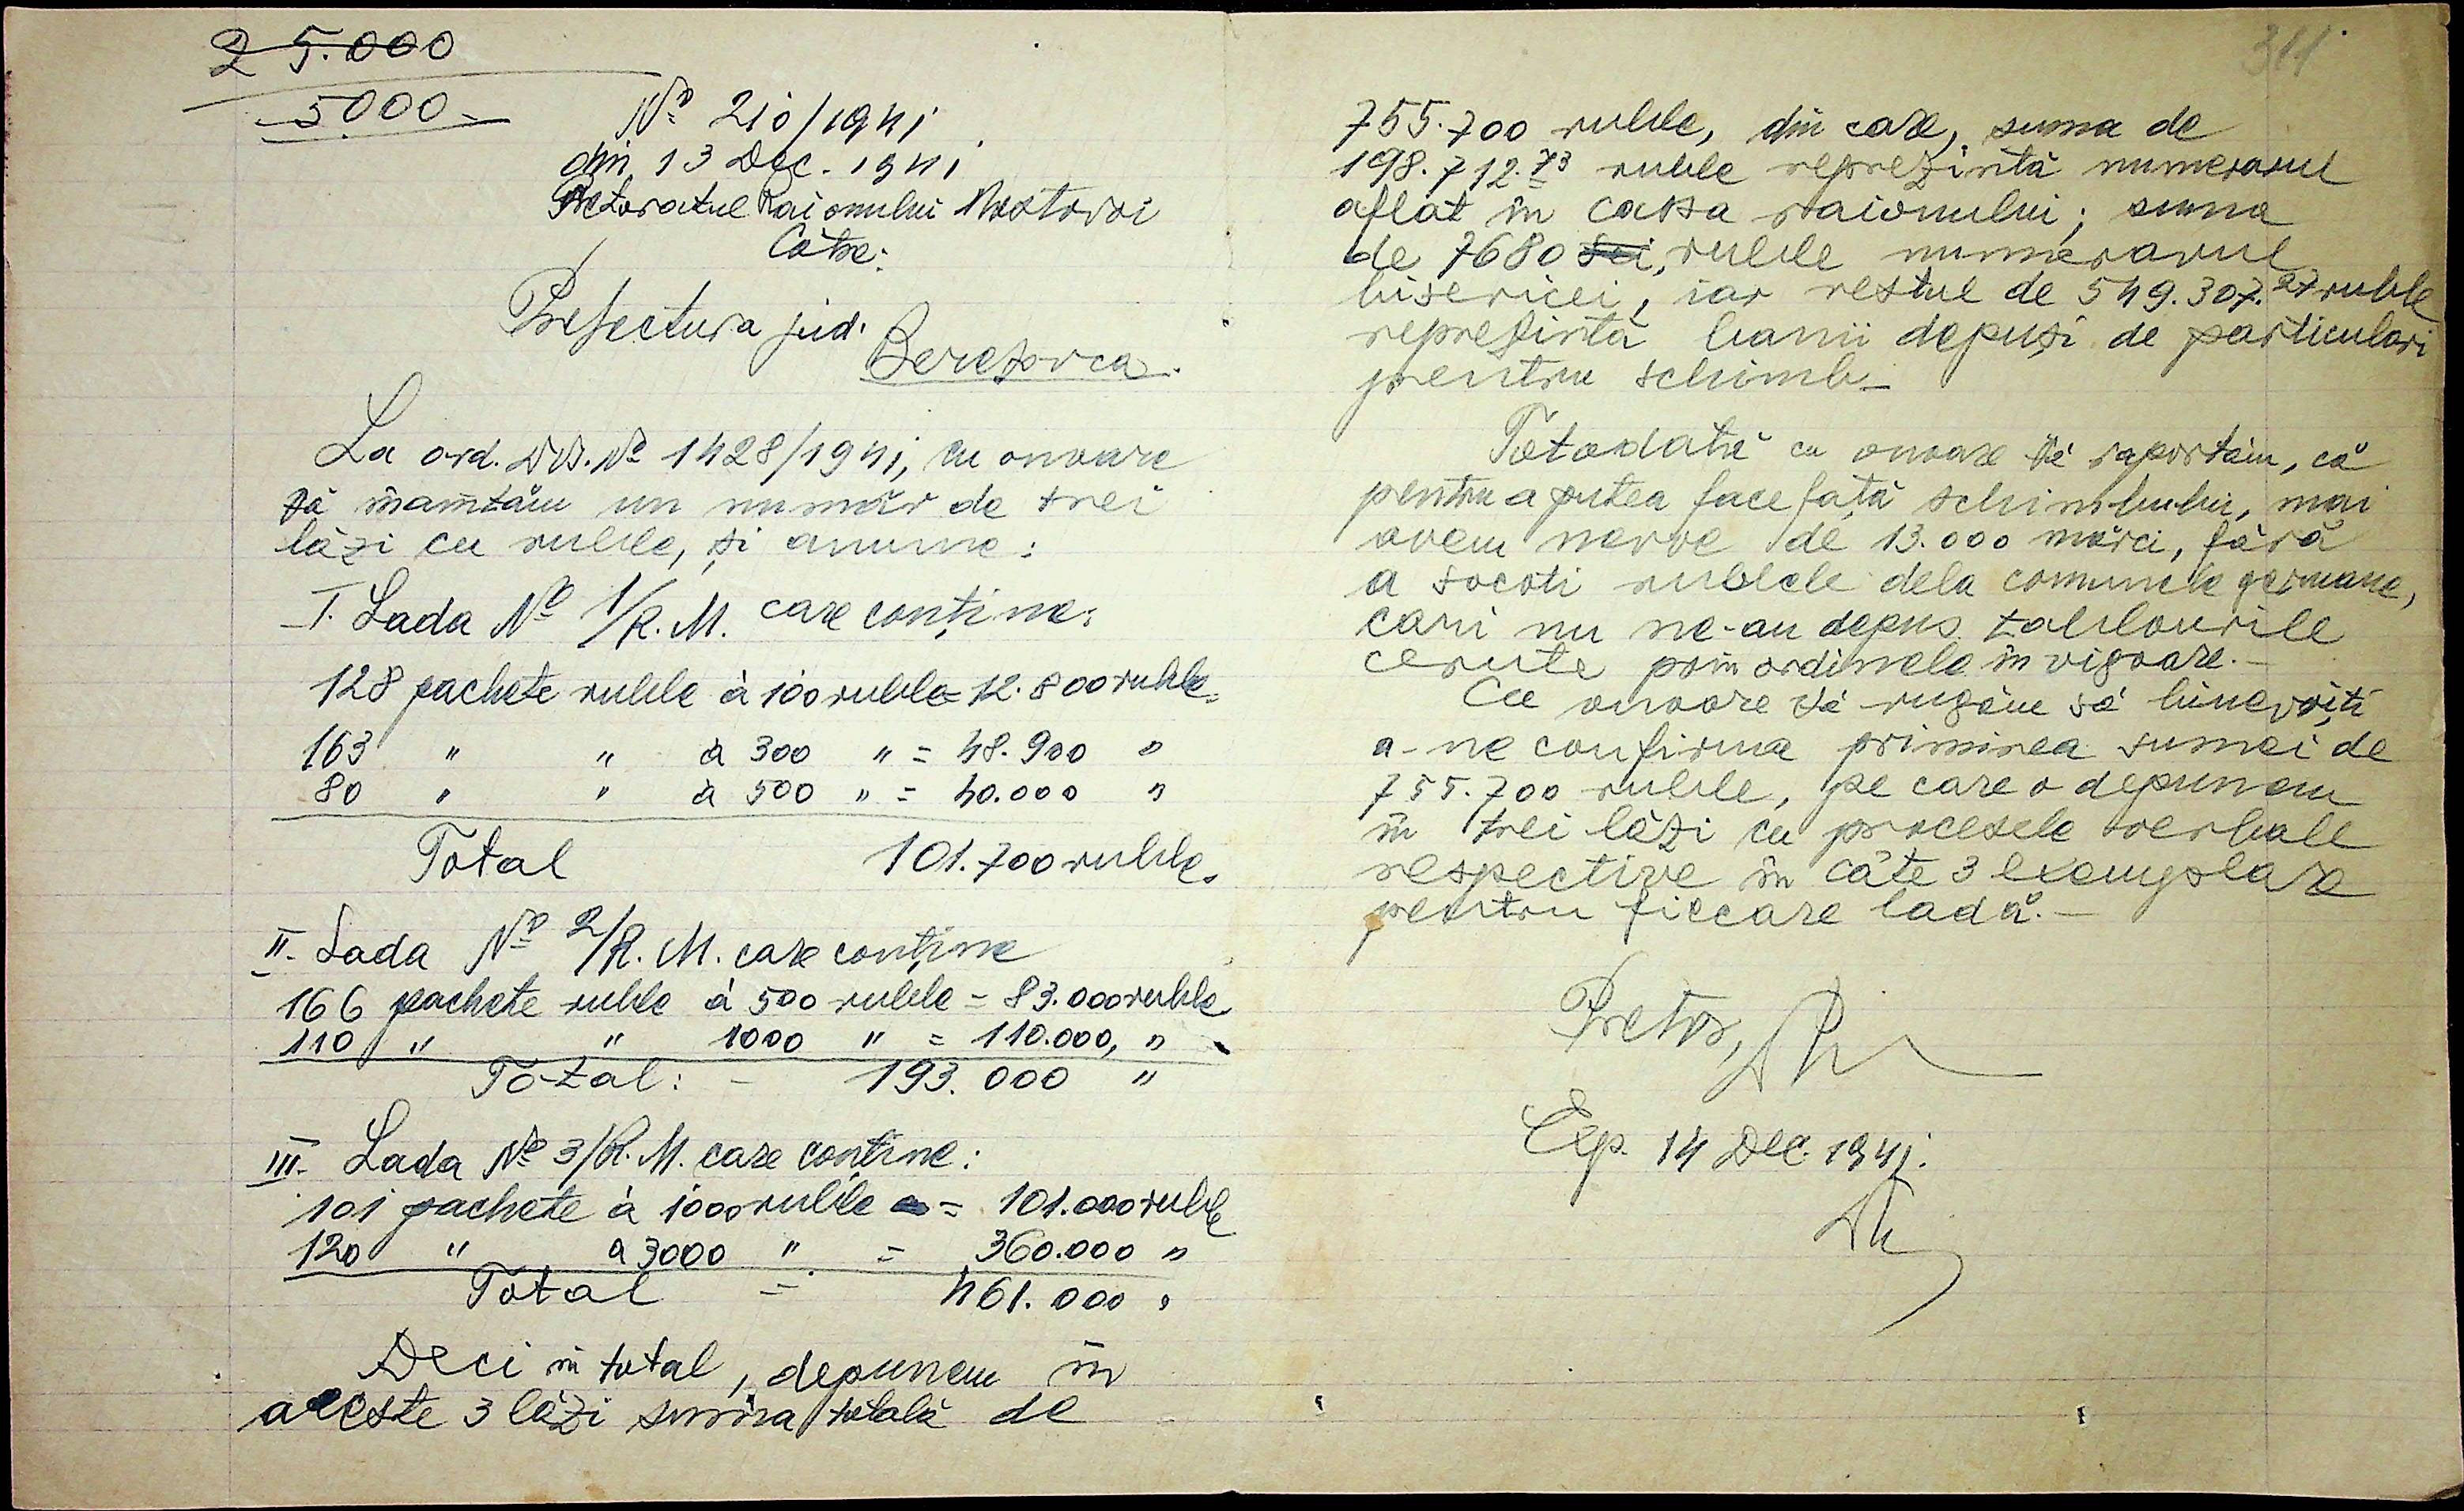 25.000
5000-
No 210/1941
din 13 Dec. 1941
Pretoratul Raionului Mostovoi
Către:
Prefectura jud.
Berezovca.
La ord. DV. No 1428/1941, cu onoare
Vă înaintăm un număr de trei
lăzi cu ruble, și anume:
I. Lada No 1/R.M. care conține:
128 pachete ruble à 100 ruble = 12.800 ruble.
163 " " à 300 " = 48.900 "
80 " " à 500 " = 40.000 "
Total 101.700 ruble.
II. Lada No 2/R.M. care conține
166 pachete ruble à 500 ruble = 83.000 ruble
110 " " 1000 " = 110.000, "
Total: - 193.000 "
III. Lada No 3/R.M. care conține:
101 pachete à 1000 ruble = 101.000 ruble
120 " a 3000 " = 360.000 "
Total = 461.000 "
Deci în total, depunem în
aceste 3 lăzi suma totală de
311
755.700 ruble, din care, suma de
198.712.73 ruble reprezintă numerarul
aflat în casa raionului; suma
de 7680 lei, ruble numerarul
bisericei, iar restul de 549.307.27 ruble
reprezintă banii depuși de particulari
pentru schimb.-
Totodată cu onoare Vă raportăm, că
pentru a putea face față schimbului, mai
avem nevoe de 13.000 mărci, fără
a socoti rublele dela comunele germane,
cari nu ne-au depus tablourile
cerute prin ordinele în vigoare.-
Cu onoare Vă rugăm să binevoiți
a-ne confirma primirea sumei de
755.700 ruble, pe care o depunem
în trei lăzi cu procesele verbale
respective în câte 3 exemplare
pentru fiecare ladă.-
Pretor,
Exp. 14 Dec. 1941.